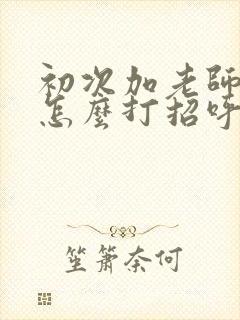 初次加老師
怎麼打招呼
笙簫奈何